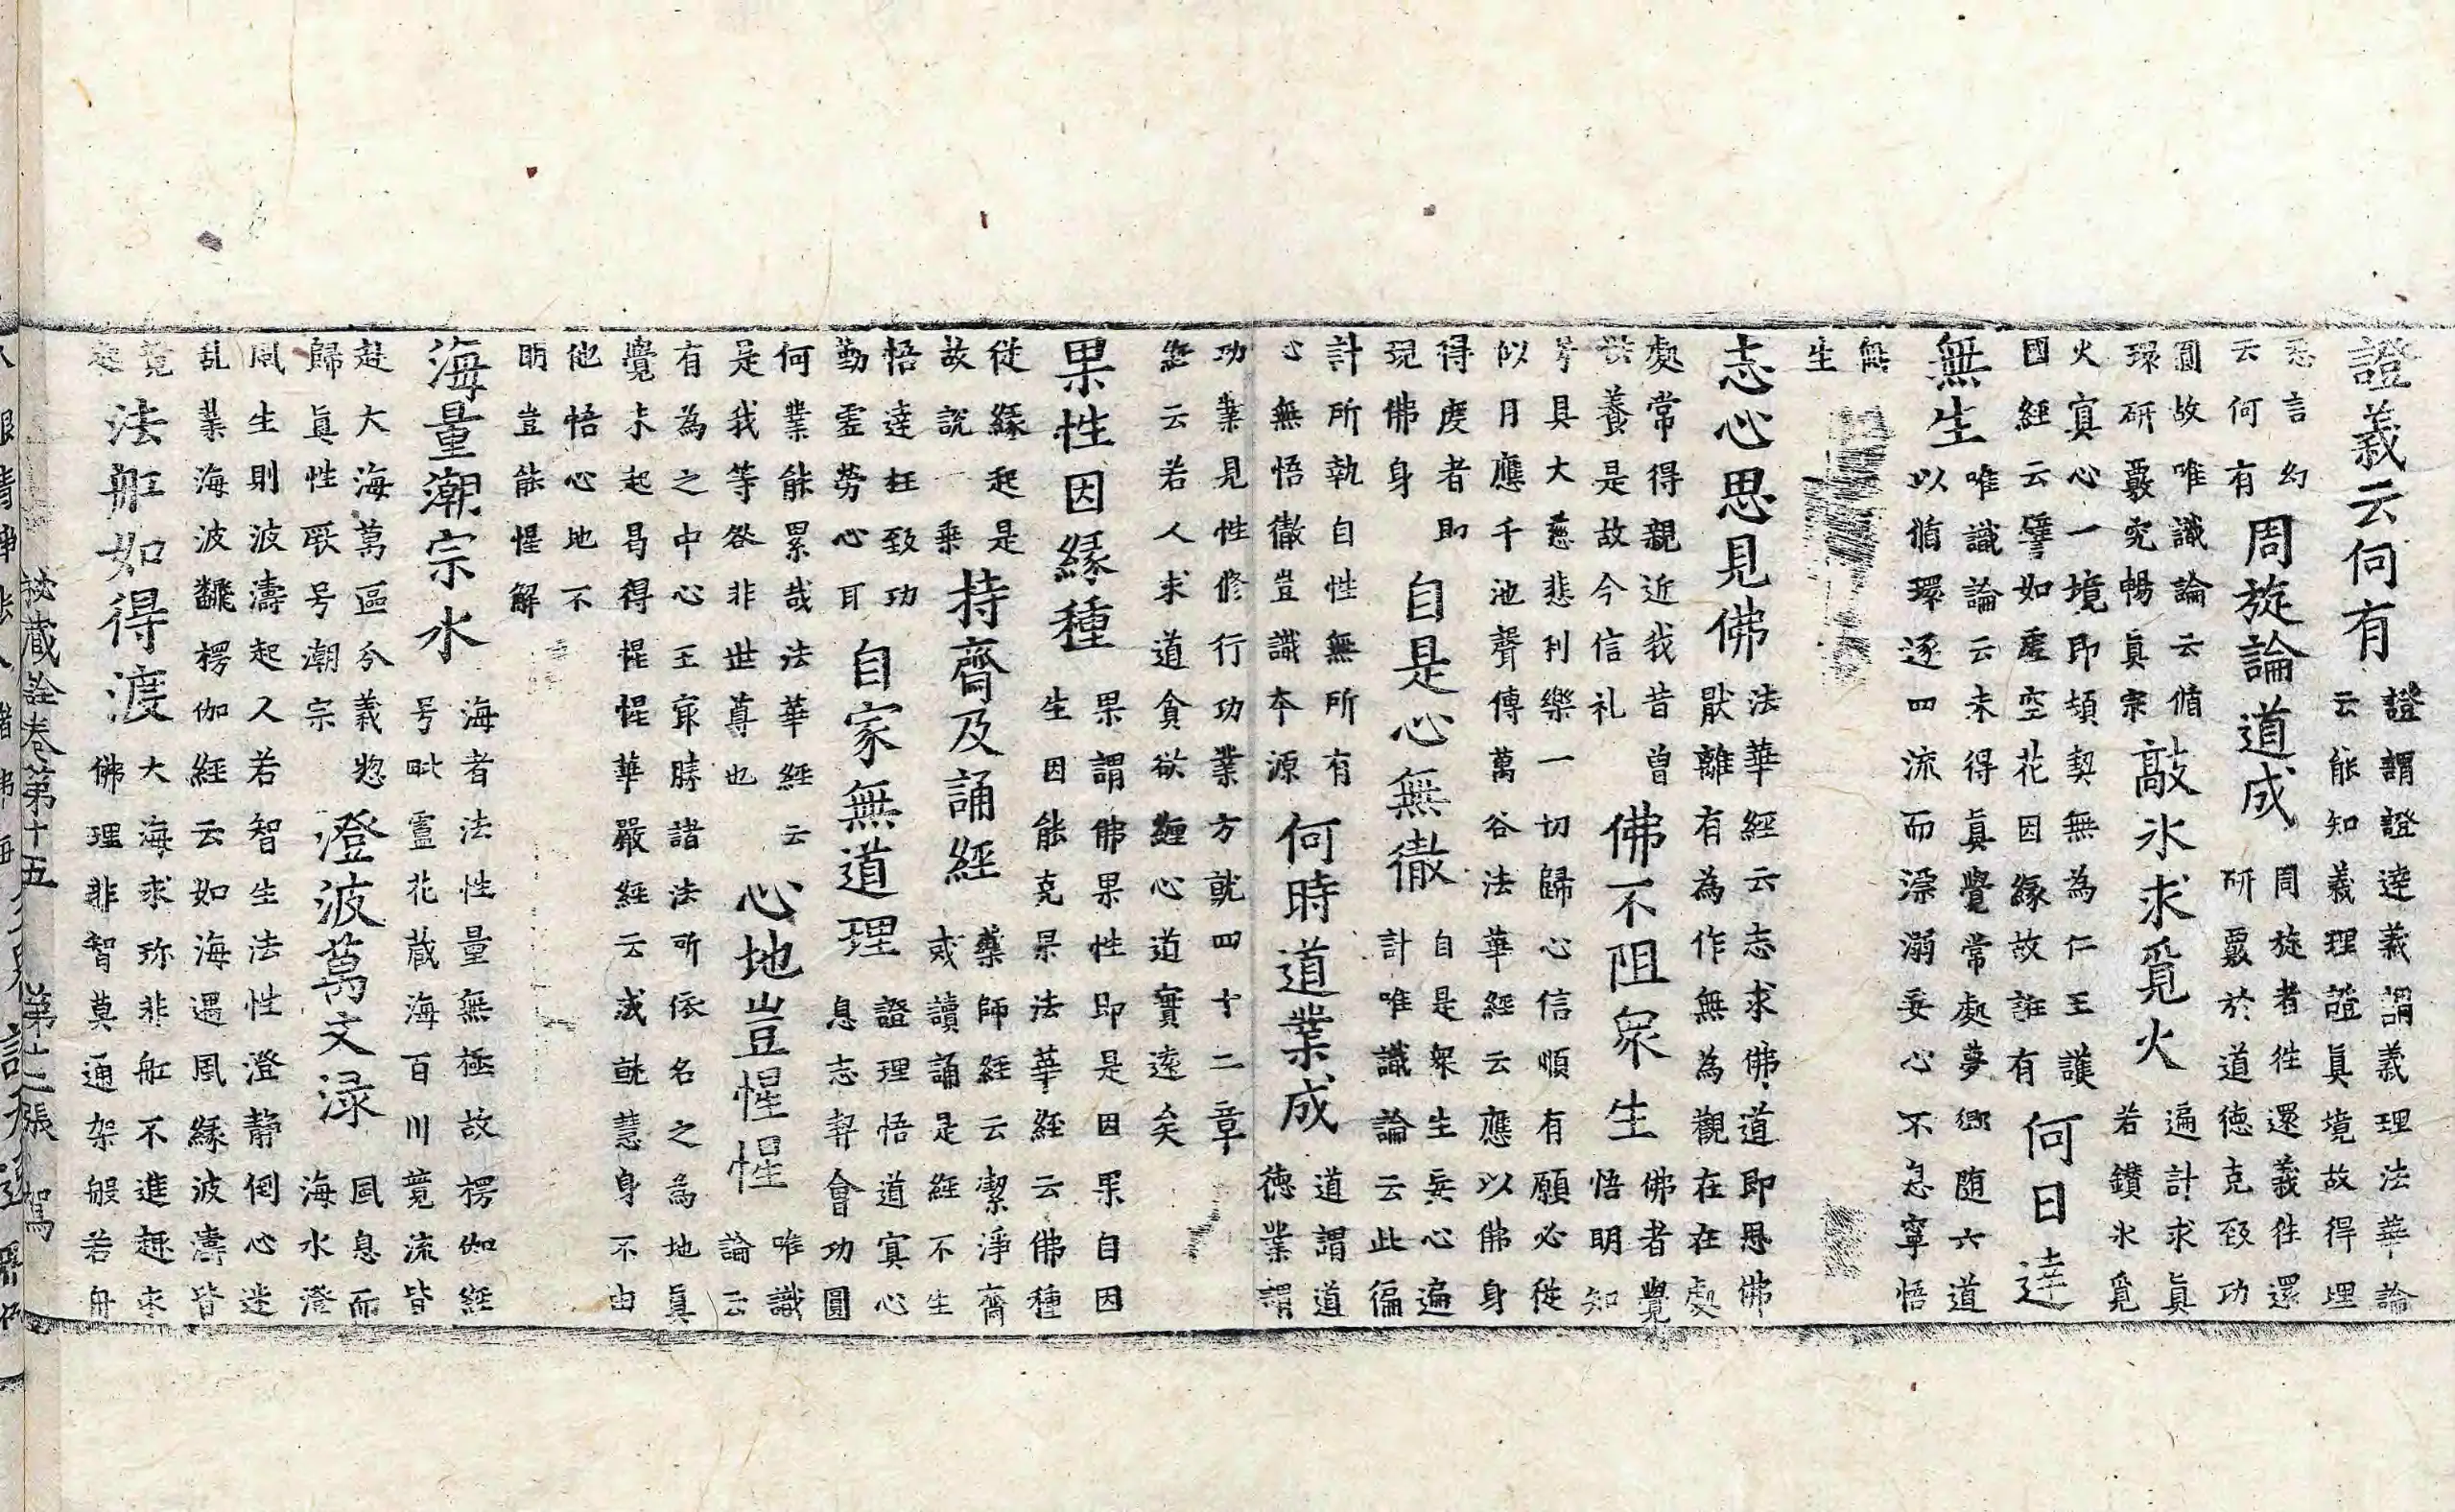 證義云何有
證謂證達義謂義理法華論
云能知義理證真境故得理
悉言幻
云何有
周旋論道成
周旋者往還義往還
研覈於道徳克致功
圓故唯識論云循
環研覈究暢真宗
敲氷求覓火
遍計求真
若鑚氷覓
火寘心一境即頓契無為仁王護
國經云譬如虛空花因緣故誑有
何日達
無生
唯識論云未得真覺常處夢鄉随六道
以循環逐四流而漂溺妄心不息寧悟
無
生
志心思見佛
法華經云志求佛道即思佛
猒離有為作無為觀在在處
處常得親近我昔曾
供養是故今信礼
佛不阻衆生
佛者覺
悟明知
号具大慈悲利樂一切歸心信順有願必從
似月應千池聲傳萬谷法華經云應以佛身
得度者即
現佛身
自是心無徹
自是衆生妄心遍
計唯識論云此徧
計所執自性無所有
心無悟徹豈識本源
何時道業成
道謂道
徳業謂
功業見性修行功業方就四十二章
經云若人求道貪欲纏心道實遠矣
果性因緣種
果謂佛果性即是因果自因
生因能克果法華經云佛種
從緣起是
故說一乗
持齋及誦經
藥師經云潔淨齋
或讀誦是經不生
悟達枉致功
勤虛勞心耳
自家無道理
證理悟道寘心
息志契會功圓
何業能累哉法華經云
是我等咎非世尊也
心地豈惺惺
唯識
論云
有為之中心王冣勝諸法所依名之為地真
覺未起曷得惺惺華嚴經云或說慧身不由
他悟心地不
明豈能惺解
海量潮宗水
海者法性量無極故楞伽經
号毗盧花蔵海百川竟流皆
赴大海萬區分義惣
歸真性厥号潮宗
澄波萬文渌
風息而
海水澄
風生則波濤起人若智生法性澄静倒心迷
乱業海波飜楞伽經云如海遇風緣波濤皆
覓
起
法舡如得渡
大海求珎非舡不進趣求
佛理非智莫通架般若舟
秘蔵詮卷第十五 第十二張 駕